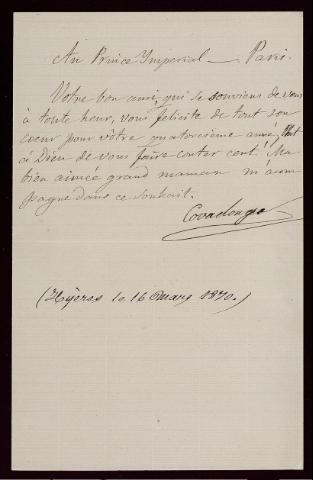 Au Prince Imperial — Paris.
Votre bon ami, qui se souviens de vous
à toute heur, vous felicite de tout son
coeur pour vôtre quatorsième année,
à Dieu de vous faire conter cent! Ma
bien aimée grand maman m'acom
pagne dans ce souhait.
Covadonga
(Hyères le 16 Mars 1870.)